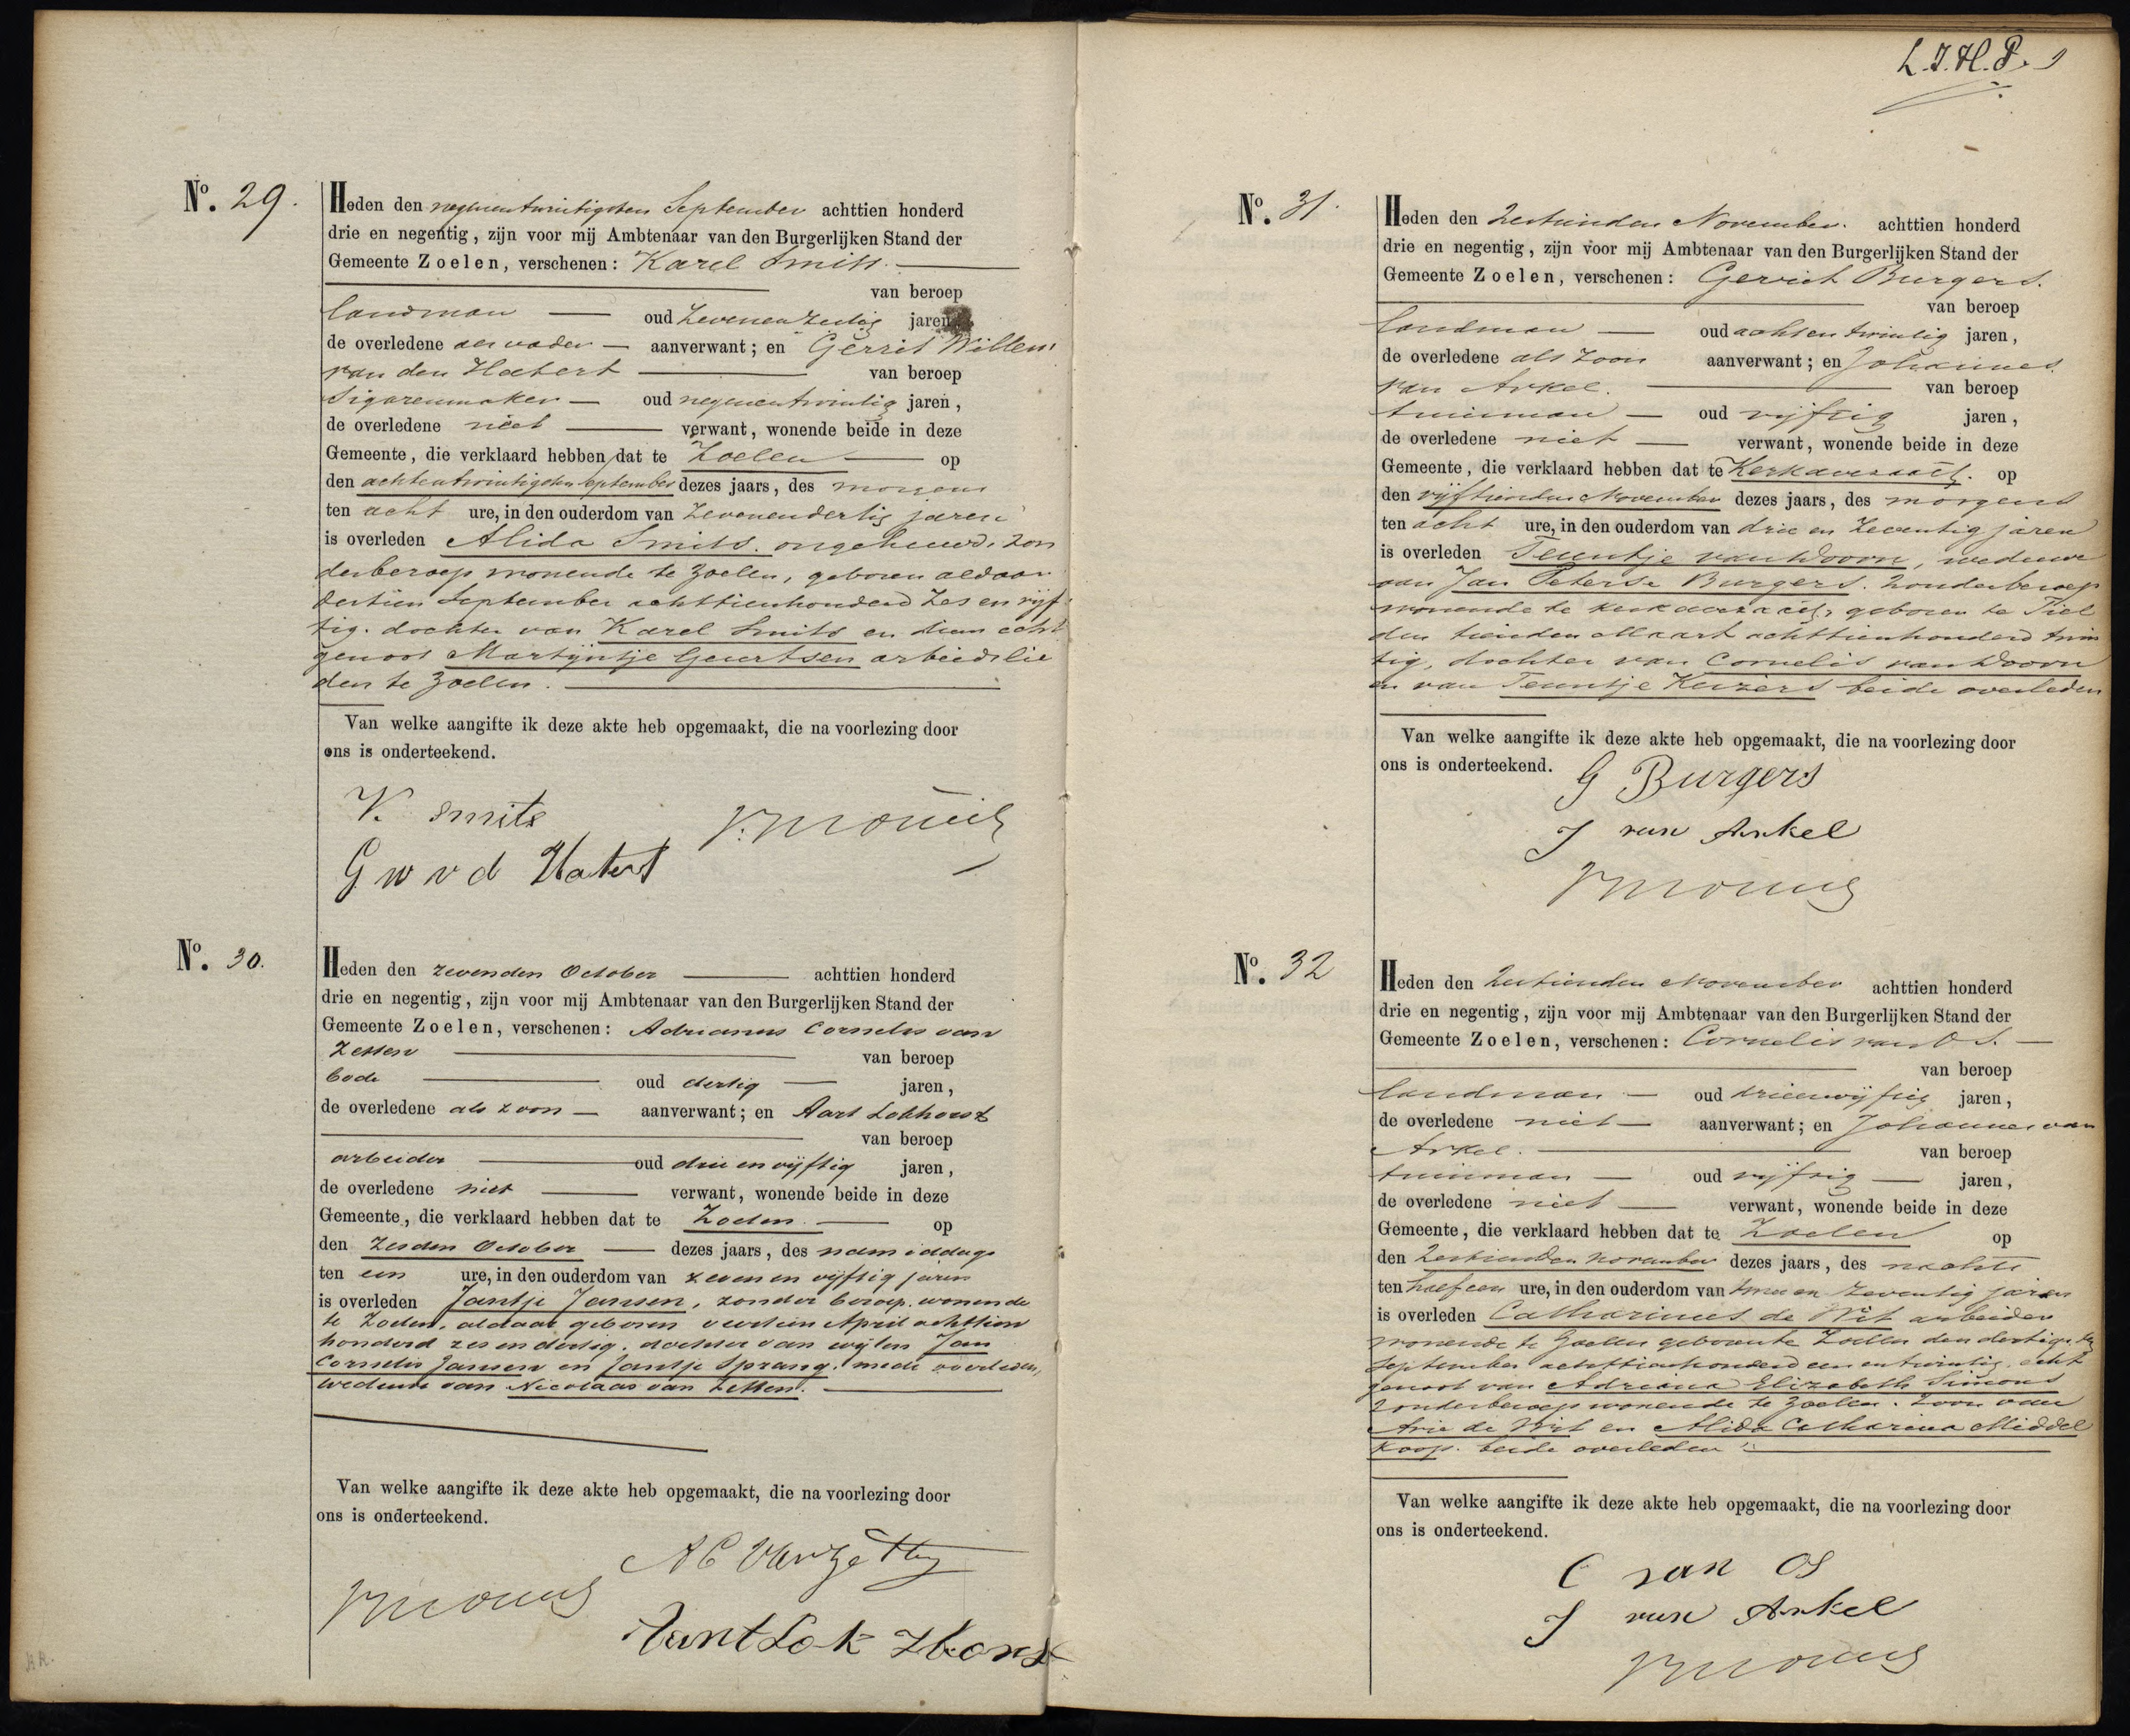 L.J.H.P.
No. 29.
Heden den negenentwintigsten September achttien honderd
drie en negentig, zijn voor mij Ambtenaar van den Burgerlijken Stand der
Gemeente Zoelen, verschenen: Karel Smits.
van beroep
landman oud zevenenzestig jaren
de overledene als vader aanverwant; en Gerrit Willem
van den Hatert van beroep
Sigarenmaker oud negenentwintig jaren,
de overledene niet verwant, wonende beide in deze
Gemeente, die verklaard hebben dat te Zoelen op
den achtentwintigsten September dezes jaars, des morgens
ten acht ure, in den ouderdom van zevenendertig jaren
is overleden Alida Smits. ongehuwd, zon
derberoep wonende te Zoelen, geboren aldaar
dertien September achttienhonderd zes en vijf
tig. dochter van Karel Smits en diens echt
genoot Martijntje Geurtsen arbeidslie
den te Zoelen.
Van welke aangifte ik deze akte heb opgemaakt, die na voorlezing door
ons is onderteekend.
K. Smits
G W v d Hatert
No. 30.
Heden den zevenden October achttien honderd
drie en negentig, zijn voor mij Ambtenaar van den Burgerlijken Stand der
Gemeente Zoelen, verschenen: Adrianus Cornelis van
Zetten van beroep
bode oud dertig jaren,
de overledene als zoon aanverwant; en Aart Lokhorst
van beroep
arbeider oud drie en vijftig jaren,
de overledene niet verwant, wonende beide in deze
Gemeente, die verklaard hebben dat te Zoelen op
den zesden October dezes jaars, des namiddags
ten een ure, in den ouderdom van zeven en vijftig jaren
is overleden Jantje Jansen, zonder beroep, wonende
te Zoelen, aldaar geboren veertien April achttien
honderd zes en dertig, dochter van wijlen Jan
Cornelis Jansen en Jantje Sprang, mede overleden,
weduwe van Nicolaas van Zetten.
Van welke aangifte ik deze akte heb opgemaakt, die na voorlezing door
ons is onderteekend.
A C van Zetten
Aart Lokhorst
No. 31.
Heden den Zestienden November. achttien honderd
drie en negentig, zijn voor mij Ambtenaar van den Burgerlijken Stand der
Gemeente Zoelen, verschenen: Gerrit Burgers.
van beroep
landman oud achtentwintig jaren,
de overledene als zoon aanverwant; en Johannes
van Arkel. van beroep
tuinman oud vijftig jaren,
de overledene niet verwant, wonende beide in deze
Gemeente, die verklaard hebben dat te Kerkavezaath. op
den vijftienden November dezes jaars, des morgens
ten acht ure, in den ouderdom van drie en zeventig jaren
is overleden Teuntje van Doorn, weduwe
van Jan Peterse Burgers. zonderberoep
wonende te Kerkavezaath, geboren te Tiel
den tienden Maart achttienhonderd twin
tig, dochter van Cornelis van Doorn
en van Teuntje Keizers beide overleden
Van welke aangifte ik deze akte heb opgemaakt, die na voorlezing door
ons is onderteekend.
G Burgers
J van Arkel
No. 32
Heden den Zestienden November achttien honderd
drie en negentig, zijn voor mij Ambtenaar van den Burgerlijken Stand der
Gemeente Zoelen, verschenen: Cornelis van Os.
van beroep
landman oud drieenvijftig jaren,
de overledene niet aanverwant; en Johannes van
Arkel. van beroep
tuinman oud vijftig jaren,
de overledene niet verwant, wonende beide in deze
Gemeente, die verklaard hebben dat te Zoelen op
den Zestienden November dezes jaars, des nachts
ten half een ure, in den ouderdom van twee en zeventig jaren
is overleden Catharinus de Wit arbeider
wonende te Zoelen geboren te Zoelen den dertigsten
September achttienhonderd een en twintig, echt
genoot van Adriana Elizabeth Simons
zonderberoep wonende te Zoelen. zoon van
Arie de Wit en Alida Catharina Middel
koop. beide overleden
Van welke aangifte ik deze akte heb opgemaakt, die na voorlezing door
ons is onderteekend.
C van Os
J van Arkel